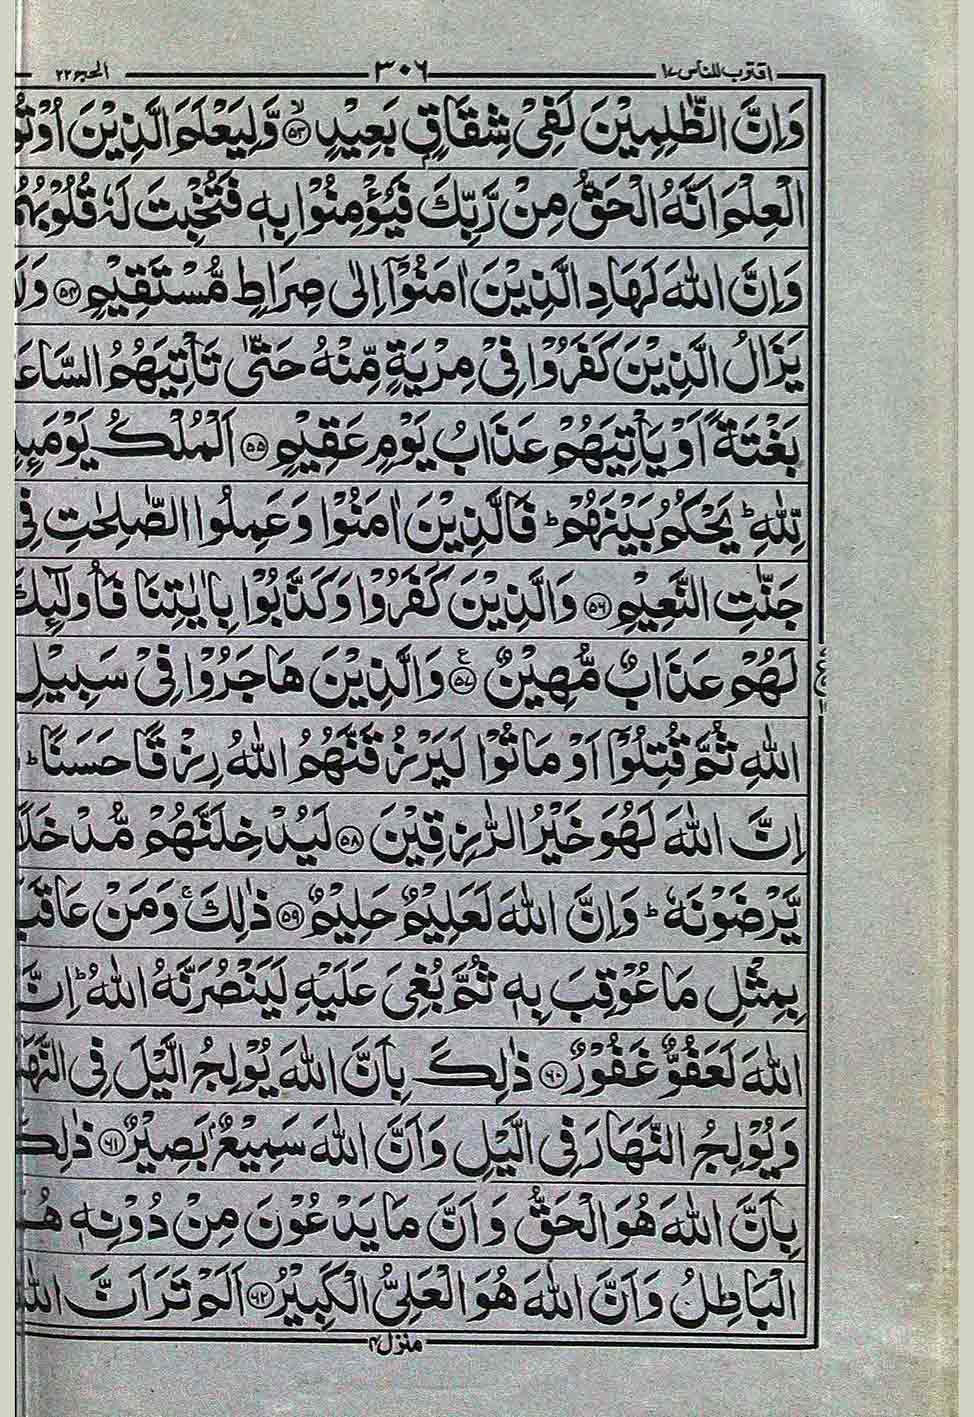 اقترب للناس ١٧ ٣٠٦ الحج ٢٢
وَاِنَّ الظّٰلِمِيْنَ لَفِيْ شِقَاقٍۭ بَعِيْدٍ ۙ﴿۵۳﴾ وَّلِيَعْلَمَ الَّذِيْنَ اُوْتُوا
الْعِلْمَ اَنَّهُ الْحَقُّ مِنْ رَّبِّكَ فَيُؤْمِنُوْا بِهٖ فَتُخْبِتَ لَهٗ قُلُوْبُهُمْ
وَاِنَّ اللّٰهَ لَهَادِ الَّذِيْنَ اٰمَنُوْۤا اِلٰى صِرَاطٍ مُّسْتَقِيْمٍ ﴿۵۴﴾ وَلَا
يَزَالُ الَّذِيْنَ كَفَرُوْا فِيْ مِرْيَةٍ مِّنْهُ حَتّٰى تَاْتِيَهُمُ السَّاعَةُ
بَغْتَةً اَوْ يَاْتِيَهُمْ عَذَابُ يَوْمٍ عَقِيْمٍ ﴿۵۵﴾ اَلْمُلْكُ يَوْمَىِٕذٍ
لِّلّٰهِ ؕ يَحْكُمُ بَيْنَهُمْ ؕ فَالَّذِيْنَ اٰمَنُوْا وَعَمِلُوا الصّٰلِحٰتِ فِيْ
جَنّٰتِ النَّعِيْمِ ﴿۵۶﴾ وَالَّذِيْنَ كَفَرُوْا وَكَذَّبُوْا بِاٰيٰتِنَا فَاُولٰٓىِٕكَ
لَهُمْ عَذَابٌ مُّهِيْنٌ ﴿۵۷﴾ ع وَالَّذِيْنَ هَاجَرُوْا فِيْ سَبِيْلِ
اللّٰهِ ثُمَّ قُتِلُوْۤا اَوْ مَاتُوْا لَيَرْزُقَنَّهُمُ اللّٰهُ رِزْقًا حَسَنًا ؕ
اِنَّ اللّٰهَ لَهُوَ خَيْرُ الرّٰزِقِيْنَ ﴿۵۸﴾ لَيُدْخِلَنَّهُمْ مُّدْخَلًا
يَّرْضَوْنَهٗ ؕ وَاِنَّ اللّٰهَ لَعَلِيْمٌ حَلِيْمٌ ﴿۵۹﴾ ذٰلِكَ ۚ وَمَنْ عَاقَبَ
بِمِثْلِ مَا عُوْقِبَ بِهٖ ثُمَّ بُغِيَ عَلَيْهِ لَيَنْصُرَنَّهُ اللّٰهُ ؕ اِنَّ
اللّٰهَ لَعَفُوٌّ غَفُوْرٌ ﴿۶۰﴾ ذٰلِكَ بِاَنَّ اللّٰهَ يُوْلِجُ الَّيْلَ فِي النَّهَارِ
وَيُوْلِجُ النَّهَارَ فِي الَّيْلِ وَاَنَّ اللّٰهَ سَمِيْعٌۢ بَصِيْرٌ ﴿۶۱﴾ ذٰلِكَ
بِاَنَّ اللّٰهَ هُوَ الْحَقُّ وَاَنَّ مَا يَدْعُوْنَ مِنْ دُوْنِهٖ هُوَ
الْبَاطِلُ وَاَنَّ اللّٰهَ هُوَ الْعَلِيُّ الْكَبِيْرُ ﴿۶۲﴾ اَلَمْ تَرَ اَنَّ اللّٰهَ
منزل ۴